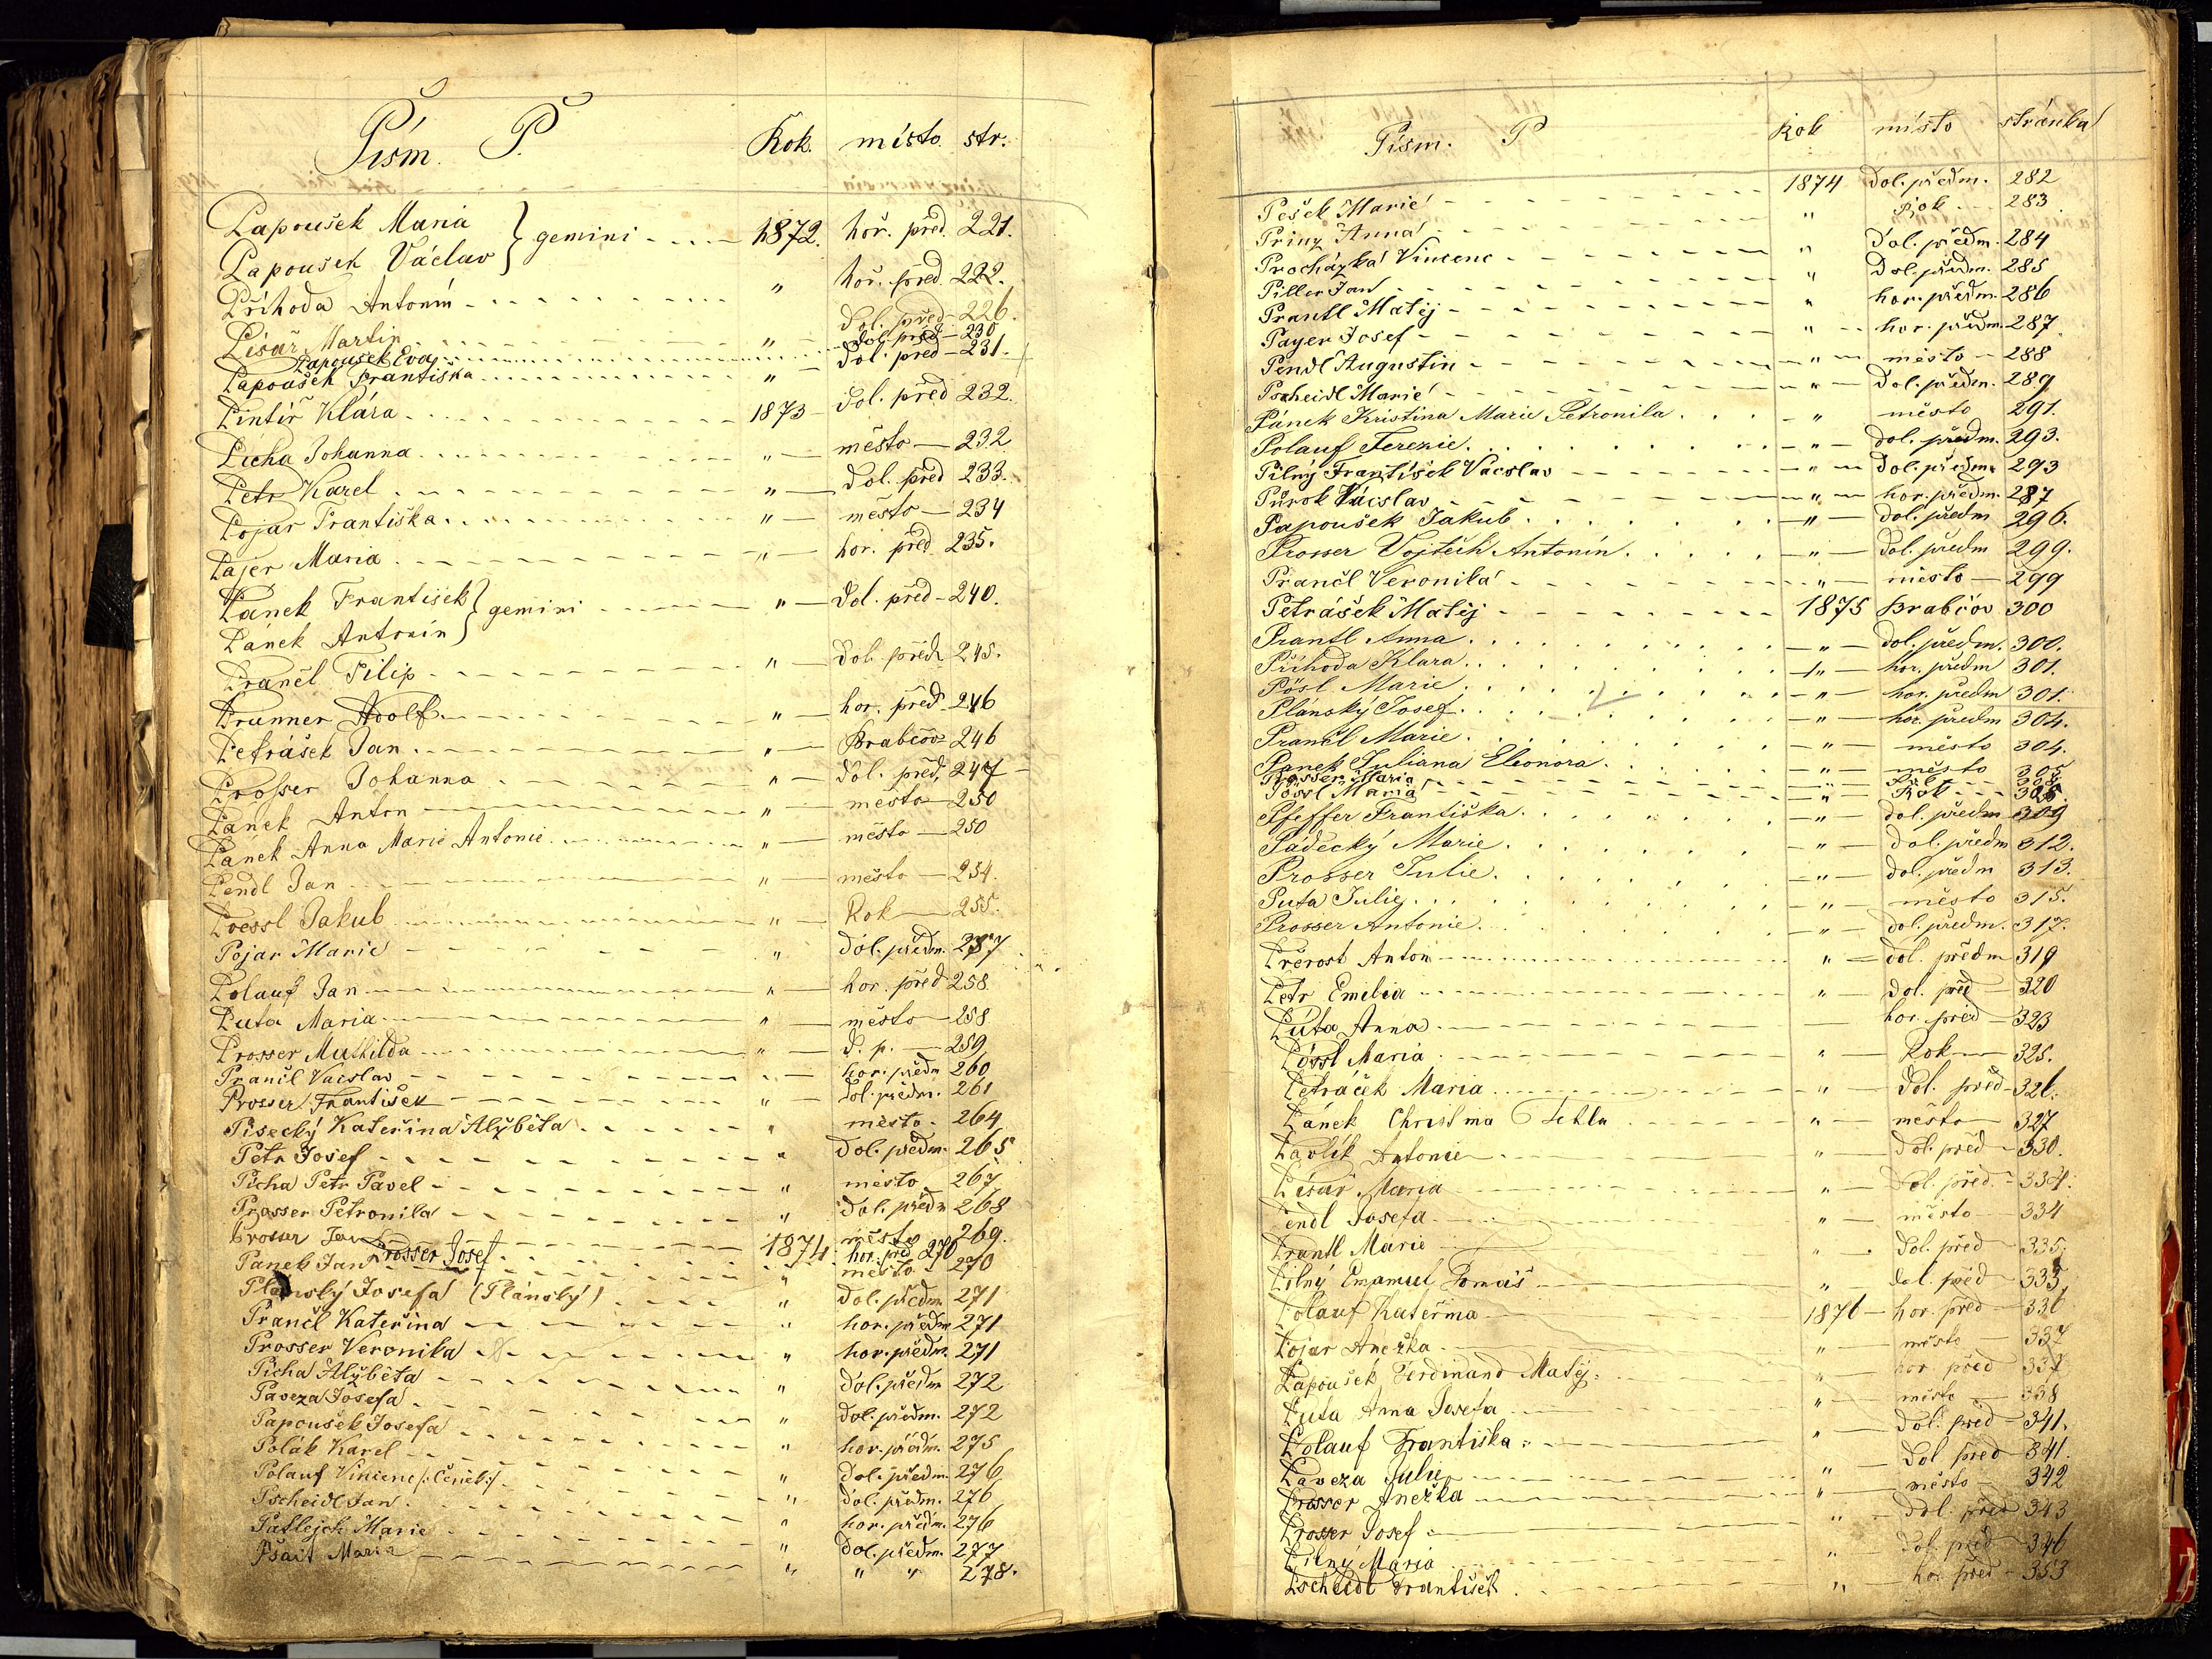 Písm. P. Rok. místo. str.
Papoušek Maria } gemini 1872. hoř. před. 221.
Papoušek Václav
Příhoda Antonín " hoř. před. 222.
Písař Martin " Dol. před 226.
Papoušek Eva Dol. před 230
Papoušek Františka " Dol. před 231.
Pintíř Klára 1873 Dol. před 232.
Pícha Johanna " město 232
Petr Karel " Dol. před 233.
Pojar Františka " město 234
Pajer Maria " hor. před 235.
Pánek František } gemini " Dol. před 240.
Pánek Antonín
Prančl Filip " Dol. před 245.
Prunner Adolf " hor. před 246
Petrášek Jan " Brabčov 246
Prosser Johanna " Dol. před. 247
Pánek Anton " město 250
Pánek Anna Marie Antonie " město 250
Pendl Jan " město 254.
Poessl Jakub " Rok 255.
Pojar Marie " dol. předm. 257
Polauf Jan " hor. před 258
Puta Maria " město 258
Prosser Mathilda " d. p. 259
Prančl Vacslav " hor. předm 260
Prosser František " dol. předm. 261
Písecký Kateřina Alžběta " město 264
Petr Josef " dol. předm. 265
Pícha Petr Pavel " město 267
Prosser Petronila " dol. předm 268
Prosser Jan město 269.
Prosser Josef 1874 hor. před 270
Panek Jan " město 270
Plánský Josefa (Plánský) " dol. předm 271
Prančl Kateřina " hor. předm 271
Prosser Veronika " hor. předm. 271
Pícha Alžběta " dol. předm 272
Paveza Josefa " dol. předm. 272
Papoušek Josefa " hor. předm. 275
Polák Karel " dol. předm. 276
Polauf Vincenc /: Čeněk :/ " dol. předm. 276
Pscheidl Jan " hor. předm. 276
Patlejch Marie " dol. předm. 277
Pšait Maria " " " 278.
Písm. P Rok místo stránka
Pešek Marie 1874 dol. předm. 282
Prinz Anna " Rok 283
Procházka Vincenc " dol. předm. 284
Piller Jan " dol. předm. 285
Prantl Matěj " hor. předm. 286
Payer Josef " hor. předm. 287
Pendl Augustin " město 288
Pscheidl Marie " dol. předm. 289
Pánek Kristina Marie Petronila " město 291.
Polauf Terezie " dol. předm. 293.
Pilný František Vácslav " dol. předm. 293
Půrok Vácslav " hor. předm. 287
Papoušek Jakub " dol. předm 296.
Prosser Vojtěch Antonín " dol. předm 299.
Prančl Veronika " město 299
Petrášek Matěj 1875 Brabčov 300
Prantl Anna " dol. předm. 300.
Příhoda Klara " hor. předm 301.
Pösl Marie " hor. předm 301.
Plánský Josef " hor. předm 304.
Prančl Marie " město 304.
Panek Juliana Eleonora " město 305
Prosser Maria " Rok
Pössl Maria " Rok
Pfeffer Františka " dol. předm 309
Sádecký Marie " dol. předm 312.
Prosser Julie " dol. předm 313.
Puta Julie " město 315.
Prosser Antonie " dol. předm. 317.
Přerost Anton " dol. předm 319
Petr Emilia " dol. před 320
Púta Anna hor. před 323
Pössl Maria " Rok 325.
Petráček Maria " Dol. před 326.
Pánek Christina Thekla " město 327
Pavlík Antonie " Dol. před 330.
Písař Maria " Dol. před. 334.
Pendl Josefa " město 334
Prantl Marie " Dol. před 335.
Pilný Emanuel Tomáš " dol. před 335
Polauf Kateřina 1876 hor. před 336
Pojar Anežka " město 337
Papoušek Ferdinand Matěj " hor. před 337
Puta Anna Josefa " město 338
Polauf Františka " Dol. před 341.
Paveza Julie " Dol před 341.
Prosser Anežka " město 342
Prosser Josef " Dol. před 343
Pilný Maria " Dol. před 346
Pscheidl František " hor. před 353